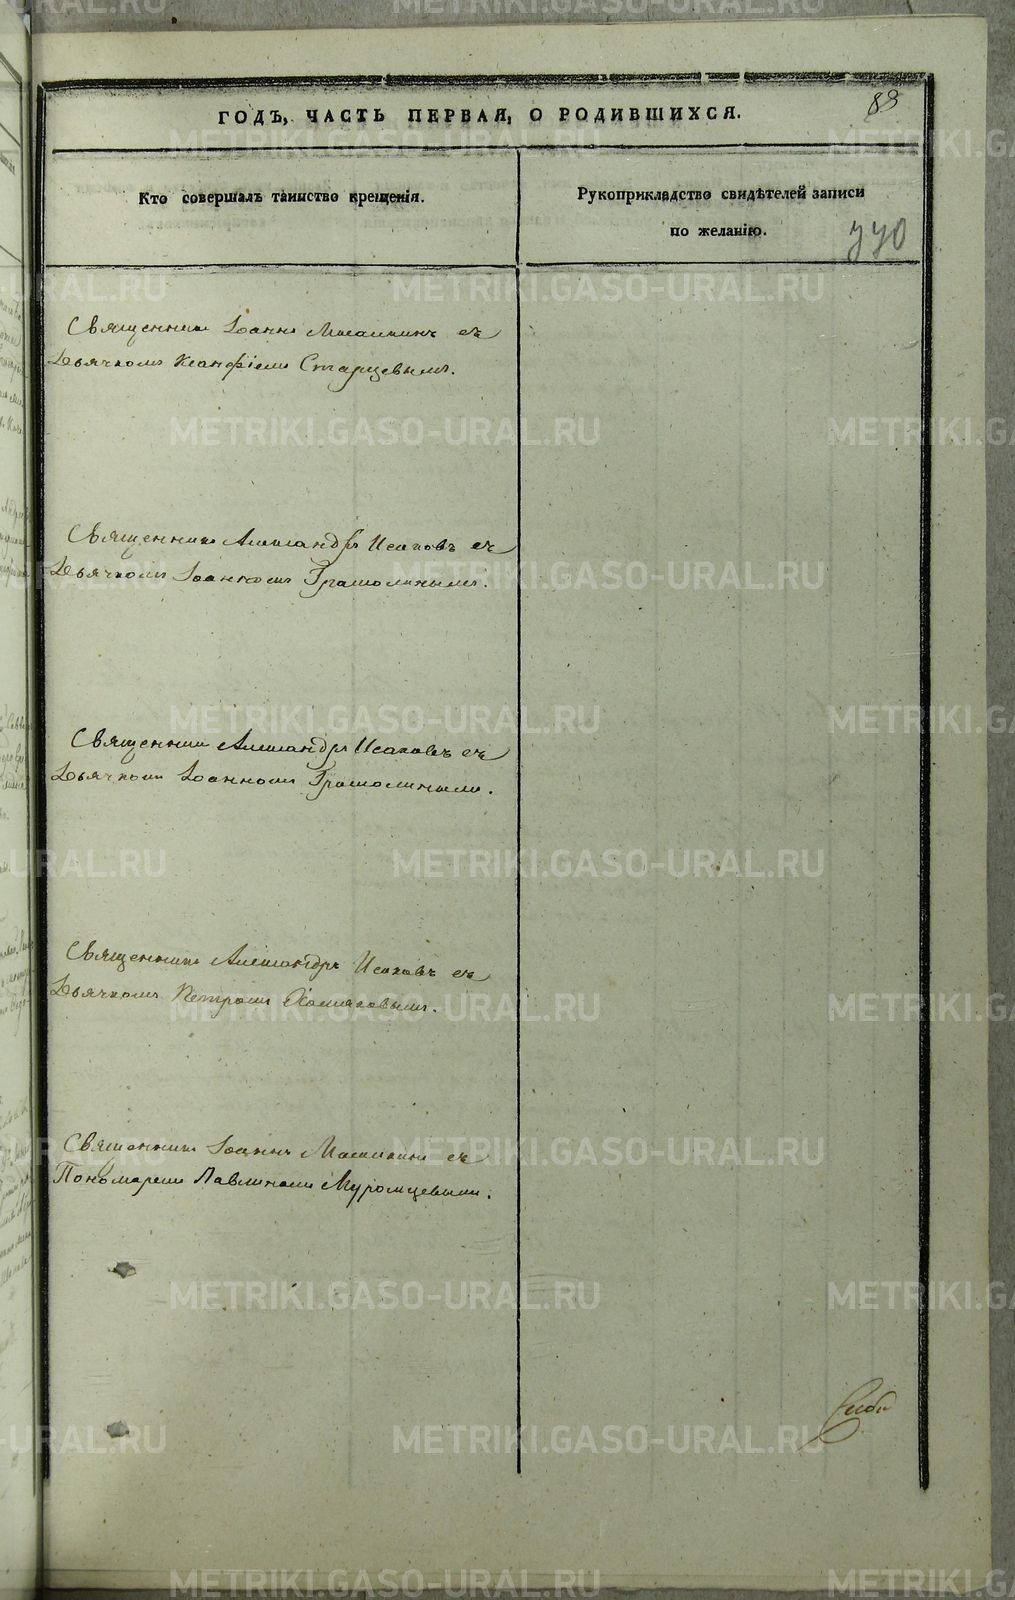 ГОДЪ, ЧАСТЬ ПЕРВАЯ, О РОДИВШИХСЯ.
Кто совершалъ таинство крещенія.
Рукоприкладство свидѣтелей записи
по желанію.
770
Священникъ Іоаннъ съ
Дьячкомъ Ксанфіемъ Старцевымъ.
Священникъ Александръ Исаковъ съ
Дьячкомъ Іоанномъ Грамолинымъ.
Священникъ Александръ Исаковъ съ
Дьячкомъ Іоанномъ Грамолинымъ.
Священникъ Александръ Исаковъ съ
Дьячкомъ Петромъ Хомяковымъ.
Священникъ Іоаннъ съ
Пономаремъ Павлиномъ Муромцевымъ.
METRIKI.GASO-URAL.RU